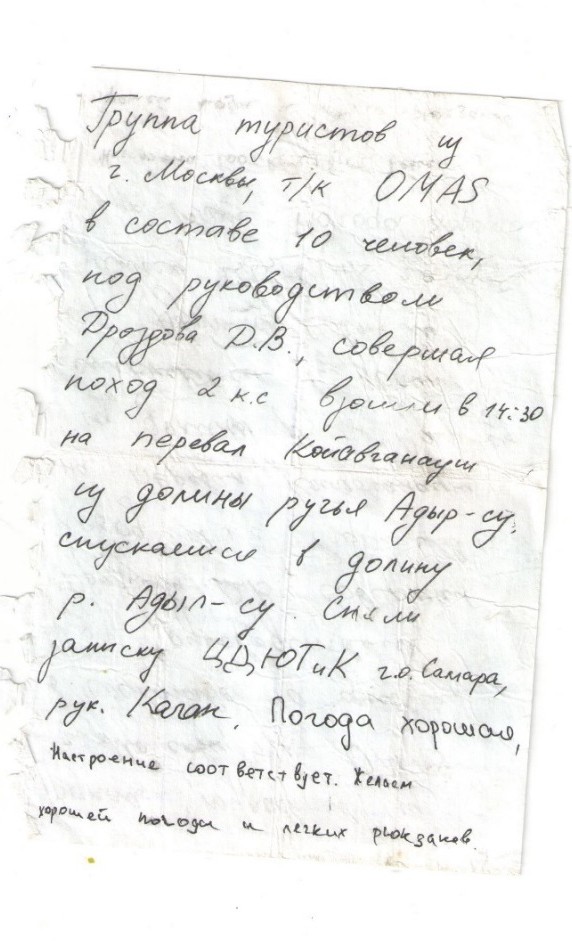 Группа туристов из
г. Москвы, т/к OMAS
в составе 10 человек,
под руководством
Дроздова Д.В., совершая
поход 2 к.с взошли в 14:30
на перевал Койавганауш
из долины ручья Адыр-су,
спускаемся в долину
р. Адыл-су. Сняли
записку ЦДЮТиК г.о. Самара,
рук. Каган. Погода хорошая,
настроение соответствует. Желаем
хорошей погоды и легких рюкзаков.